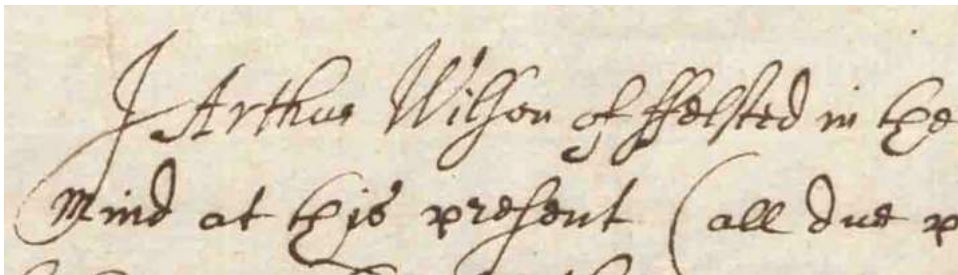 I Arthur Wilson of ffelsted in the
Mind at this present (all due p